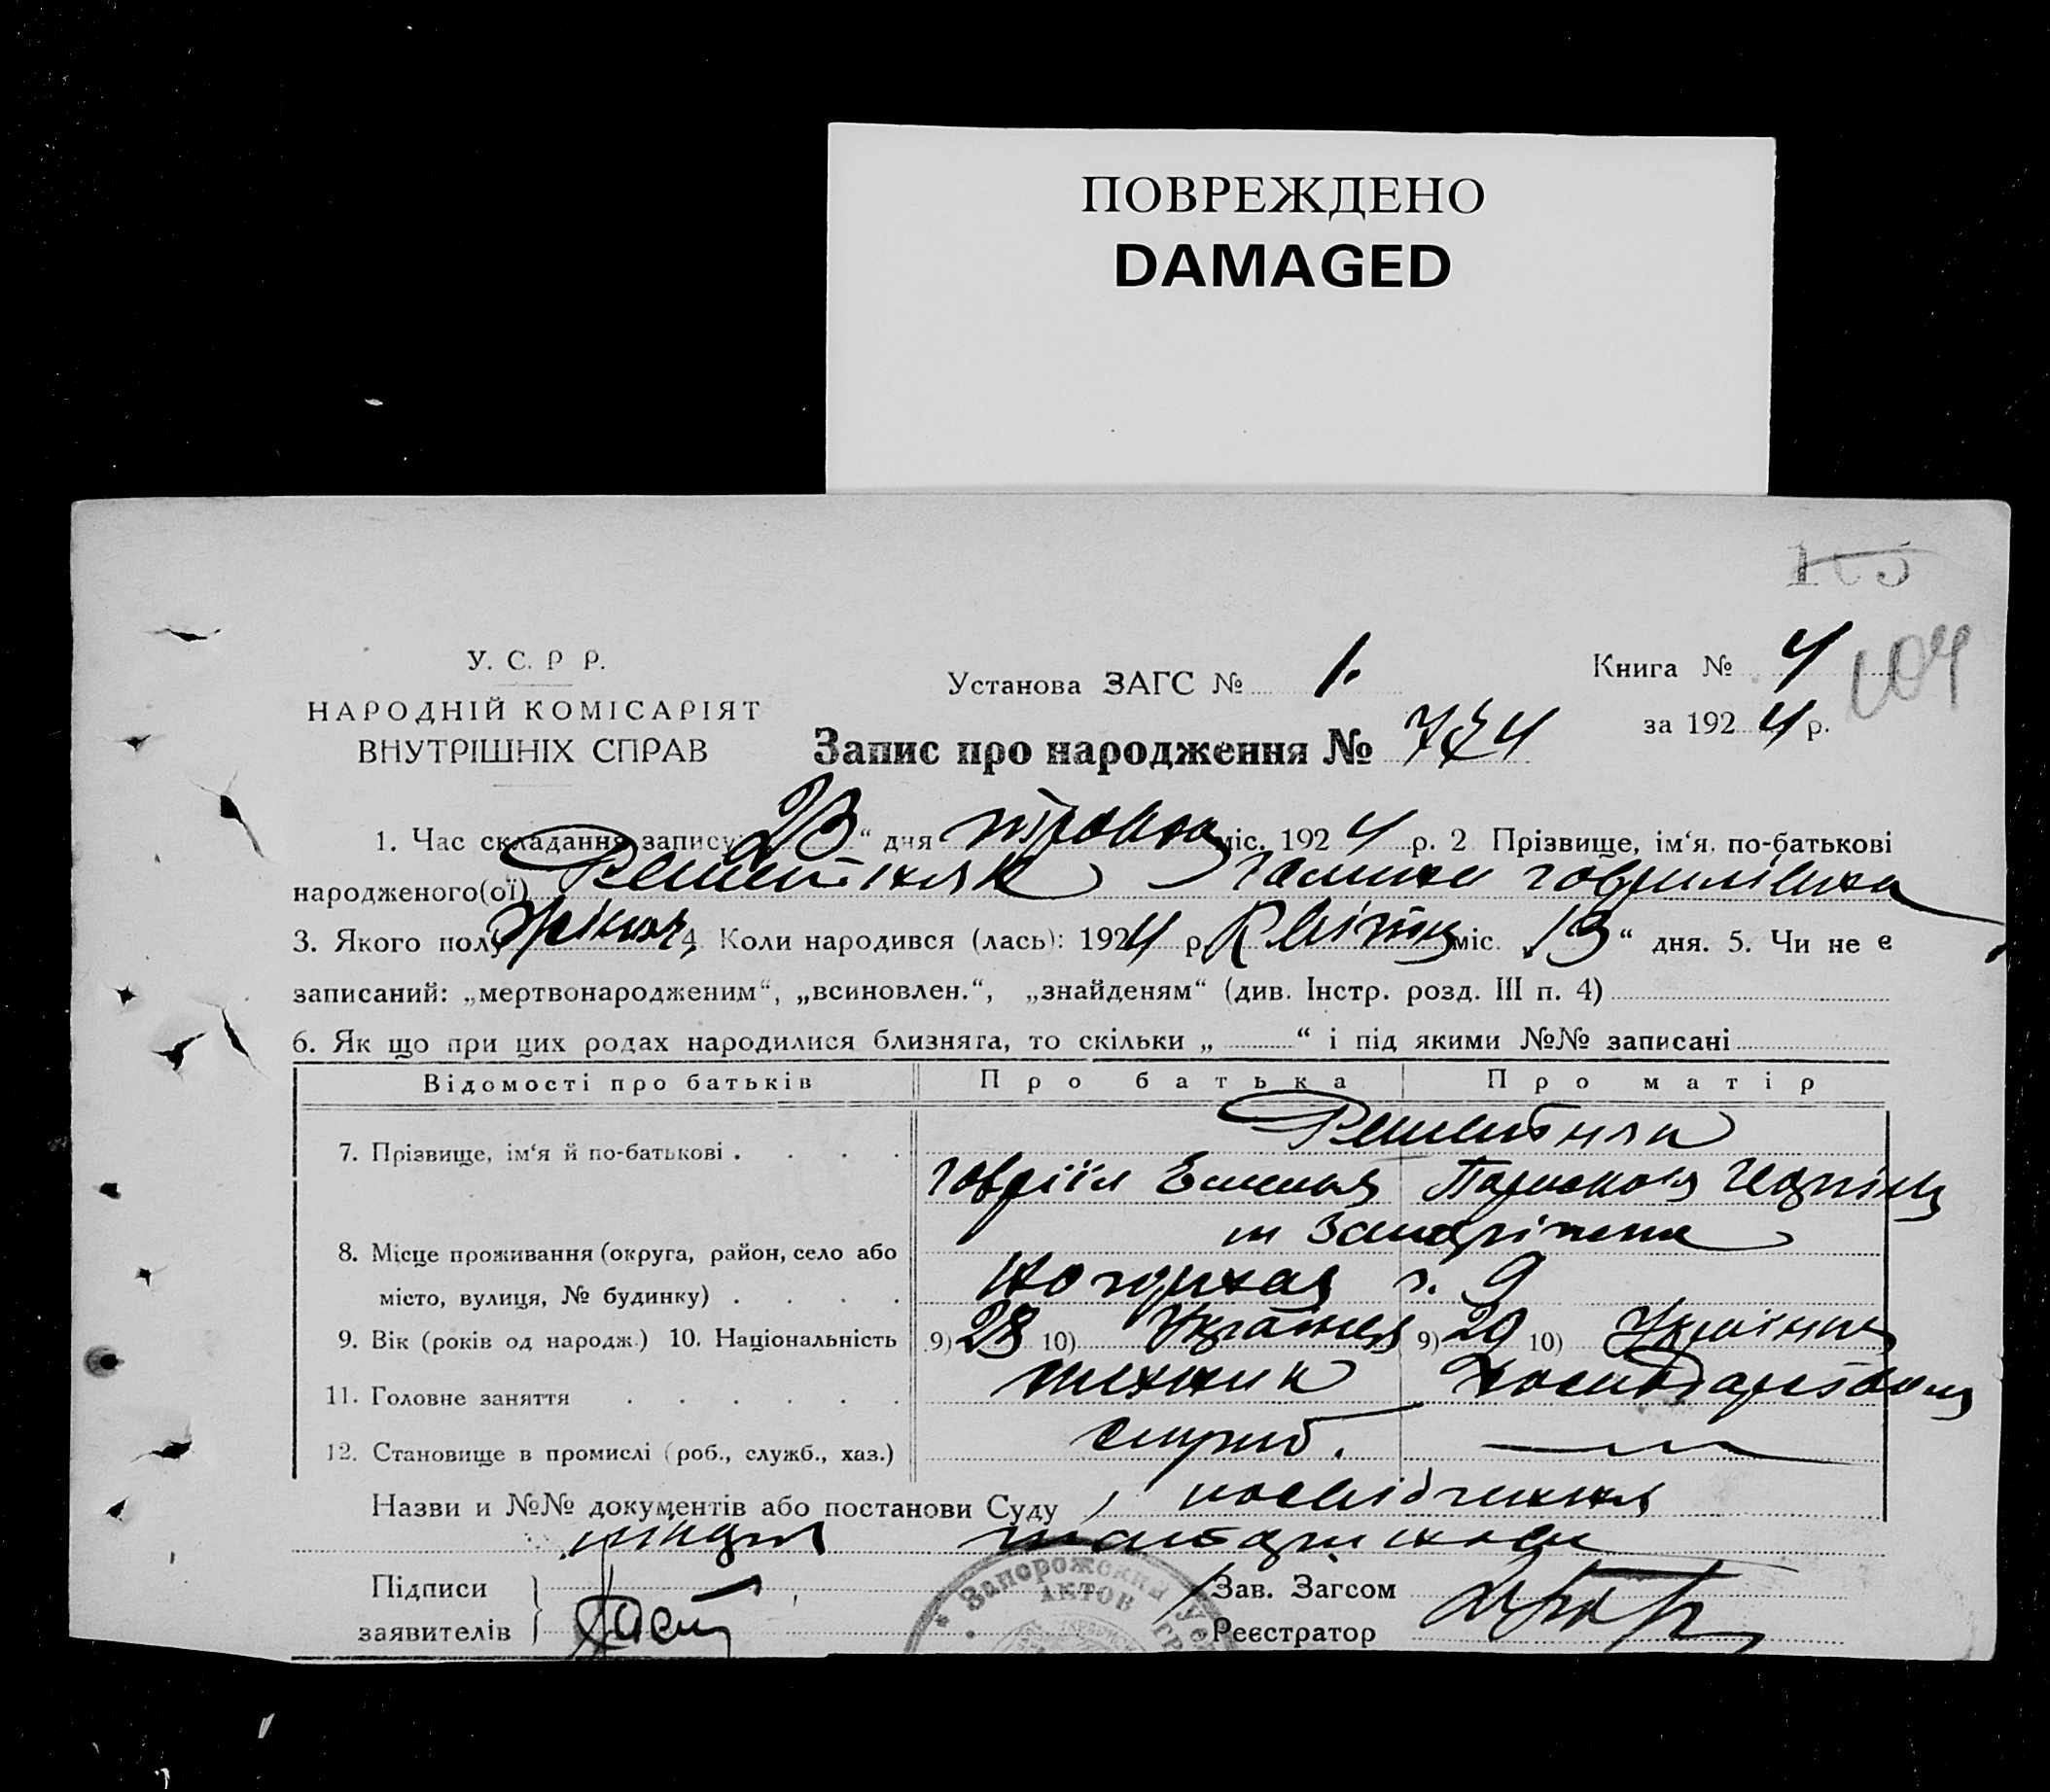 ПОВРЕЖДЕНО
DAMAGED
У. С. Р Р.
НАРОДНІЙ КОМІСАРІЯТ
ВНУТРІШНІХ СПРАВ
Установа ЗАГС № 1.
Книга № 4
за 1924 р.
104
Запис про народження №
1. Час складання запису 23 “ дня травня міс. 1924 р. 2 Прізвище, ім‘я, по-батькові
народженого(ої) Решетняк Галина Гавриловна
3. Якого полу жіноч. 4. Коли народився (лась): 1924 р. Квітня міс. „13“ дня. 5. Чи не є
записаний: „мертвонародженим“, „всиновлен.“, „знайденям“ (див. Інстр. розд. III п. 4)
6. Як що при цих родах народилися близняга, то скільки „ “ і під якими №№ записані
Відомості про батьків Про батька Про матір
Решетняк
7. Прізвище, ім‘я й по-батькові
Гавріїл
м Запоріжжя
8. Місце проживання (округа, район, село або
місто, вулиця, № будинку) Нагорная 9
9. Вік (років од народж.) 10. Національність 9) 28 10) Українец 9) 29 10) Українка
11. Головне заняття технік
12. Становище в промислі (роб., служб., хаз.) служб.
Назви и №№ документів або постанови Суду посвідчення
Підписи
заявителів
Запорожский
АКТОВ
Зав. Загсом
Реєстратор